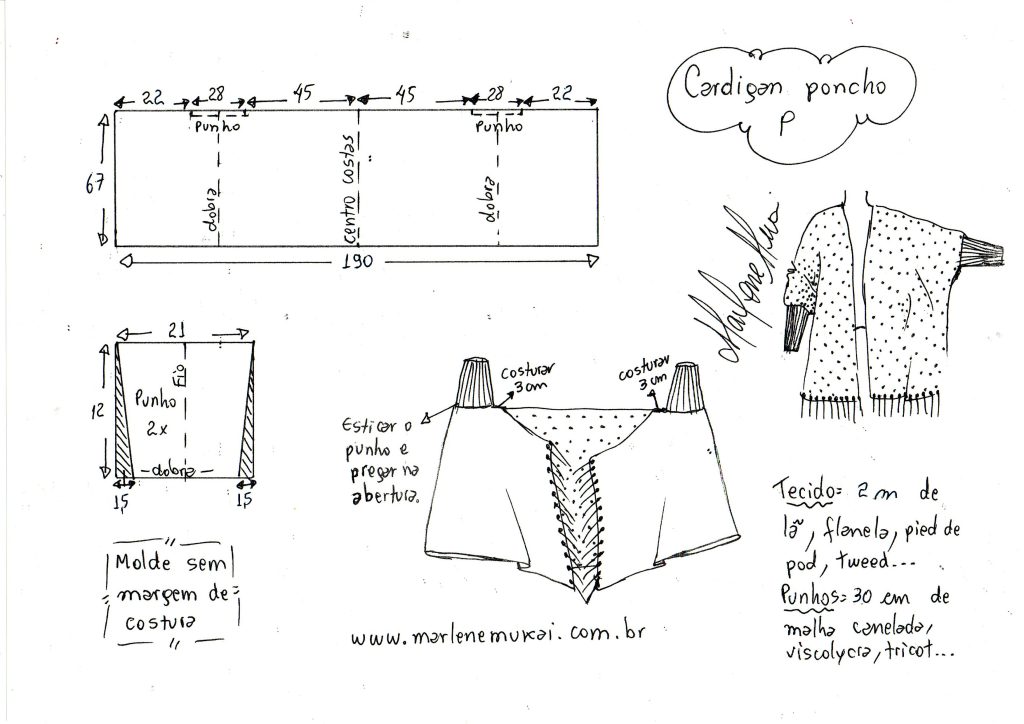 Cardigan poncho
P
22 28 45 45 28 22
Punho Punho
67
dobra
centro costas
dobra
190
21
12
Fio
Punho
2x
-dobra-
1,5 1,5
Molde sem
margem de
costura
costurar
3cm
costurar
3cm
Esticar o
punho e
pregar na
abertura.
www.marlenemukai.com.br
Marlene Mukai
Tecido= 2m de
lã, flanela, pied de
pod, tweed...
Punhos=30 cm de
malha canelada,
viscolycra, tricot...